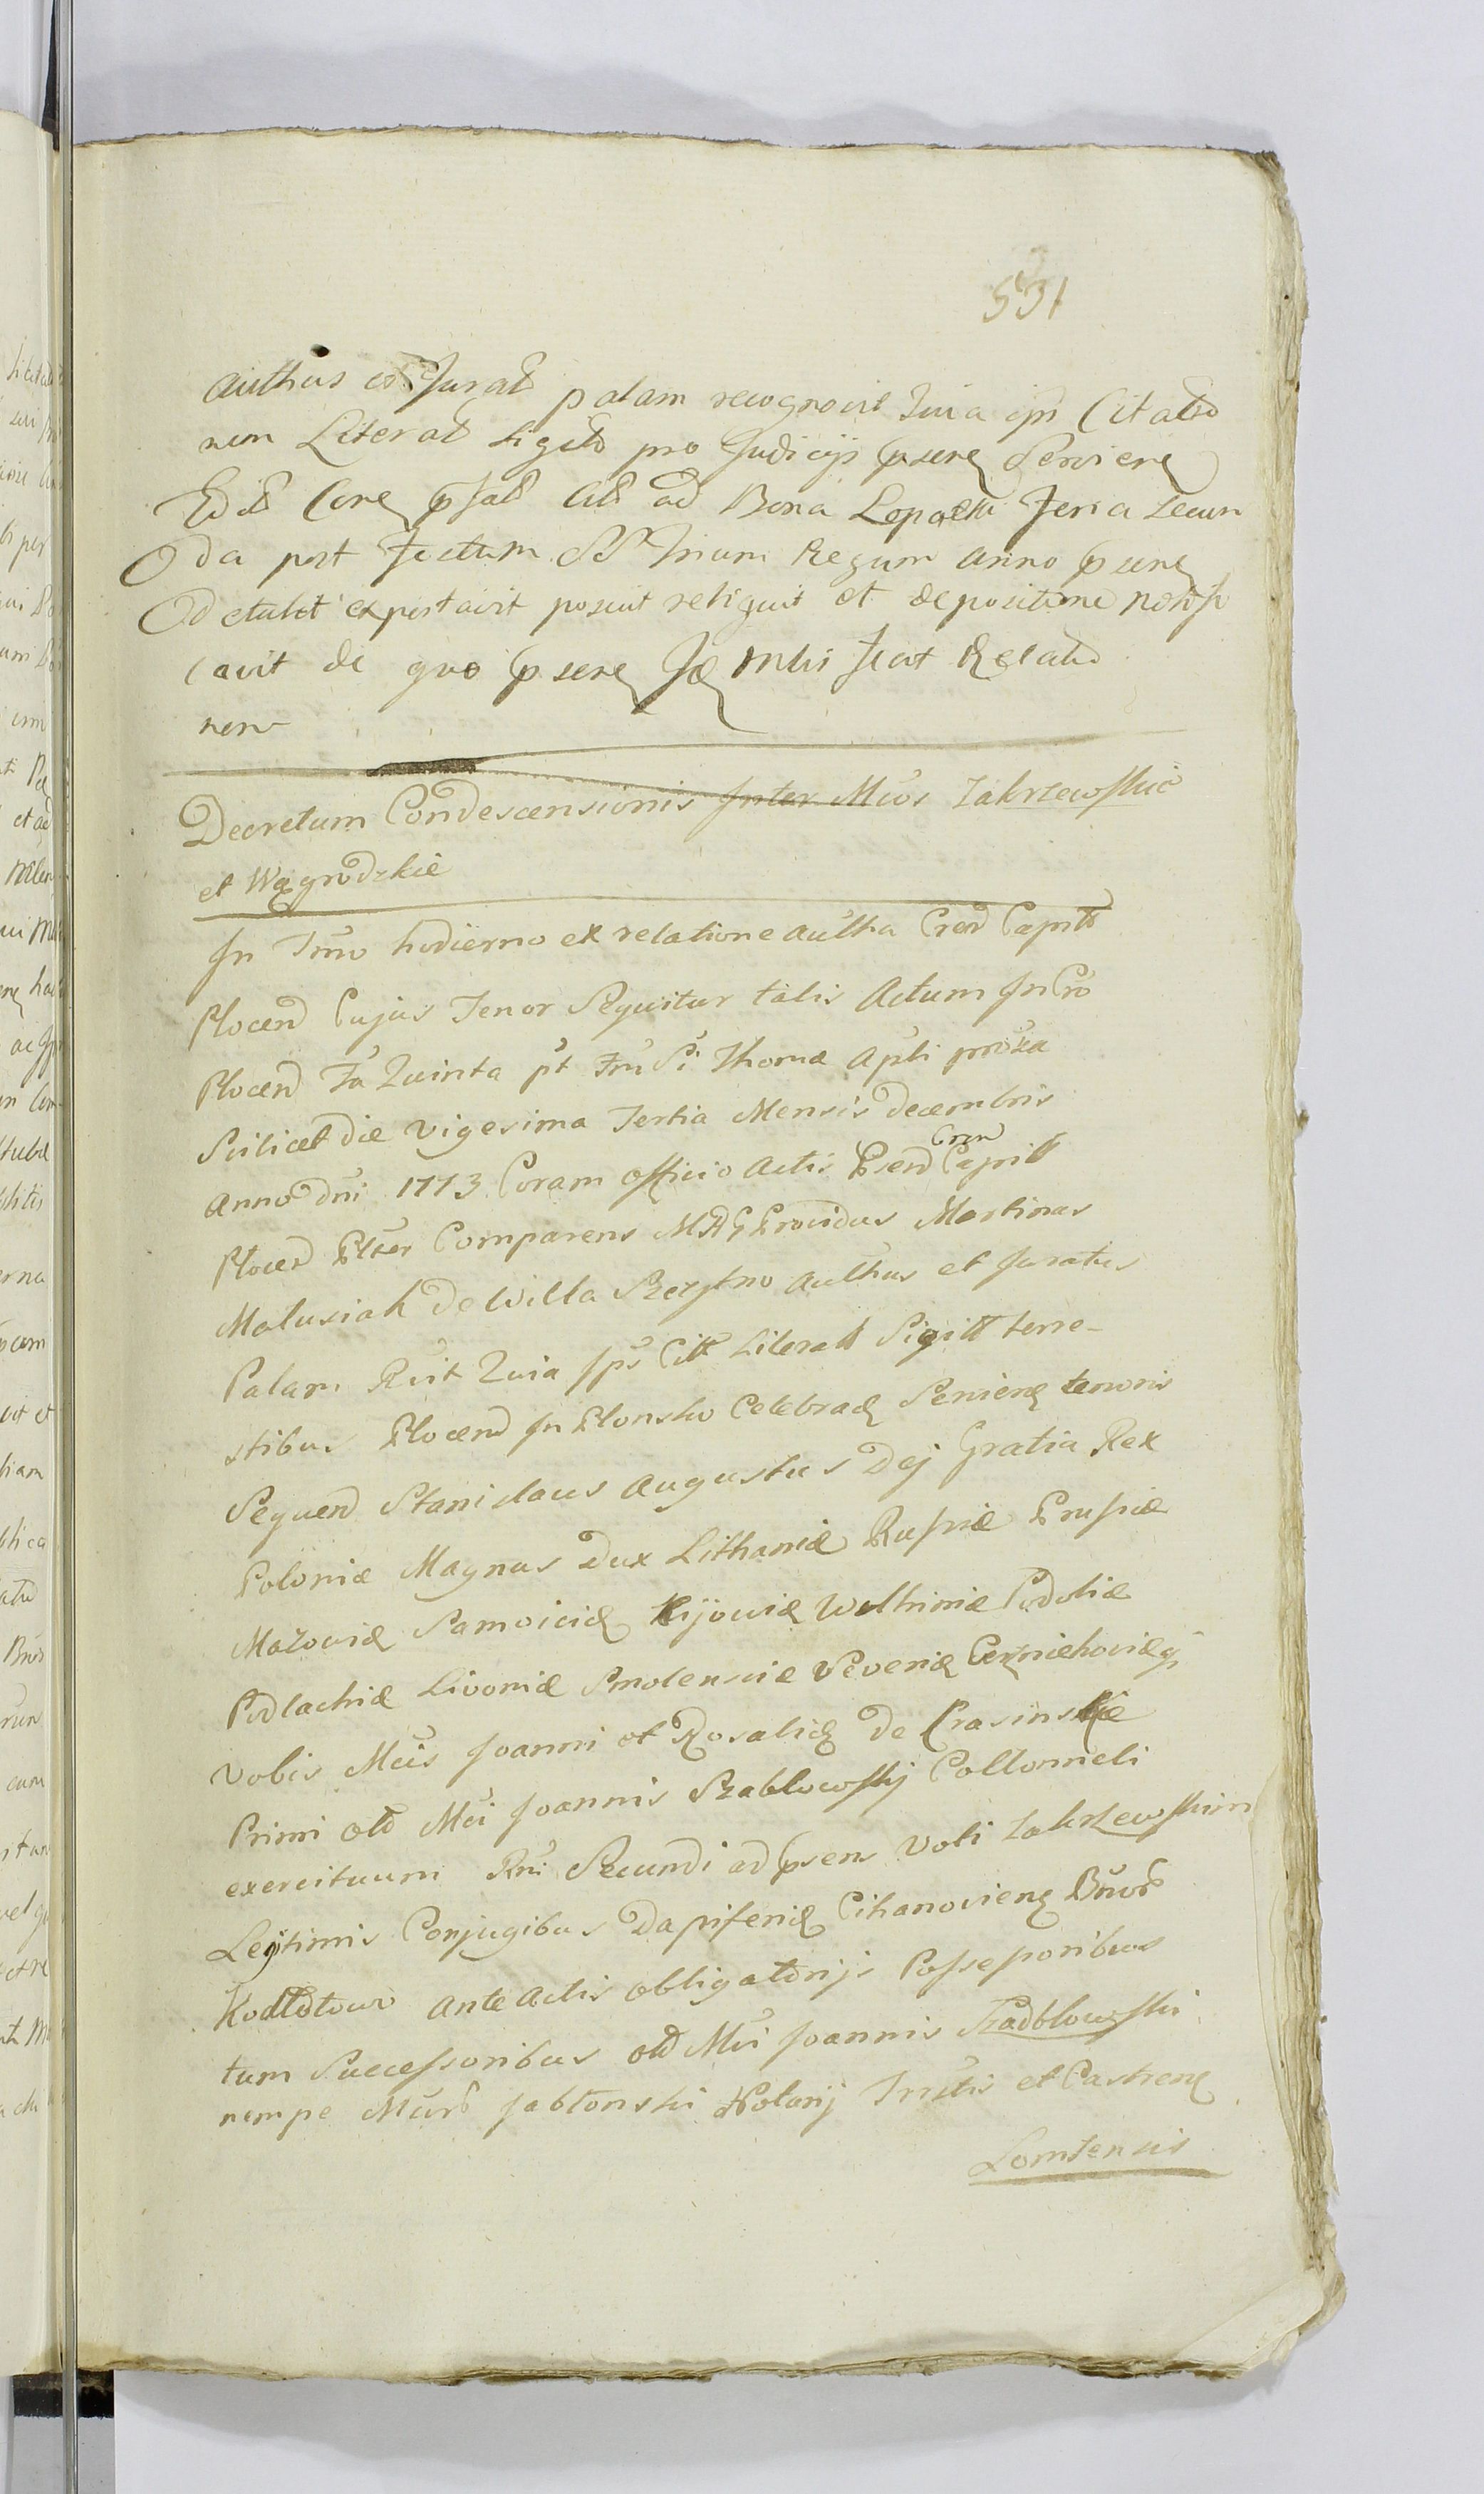 531
authus et Jurat palam recognovit Quia ipse Citatio
nem Literat Sigil pro Judicijs psene Serviene
Edit Cone ad Bona Lopacki feria secun
da post festum SS Trium Regum anno psene
detulit exportavit posuit reliquit et depositione notifi
cavit de quo psene mihi fecit Relatio
nem
Decretum Condescensionis Inter Mcos Zakrzewskie
et Wągrodzkie
In Tmno hodierno ex relatione autha Cren Capitt
Plocen Cujus Tenor Sequitur talis Actum In Cro
Plocen Fa Quinta pt Fm Sti Thomæ Apli proxa
Scilicet die vigesima Tertia Mensis decembris
Anno Dni 1773 Coram officio Actis Psen Cren Capitt
Plocen Plter Comparens Providus Martinus
Malusiak de Willa authus et Juratus
Palam Rvit Quia Ips Citt Literatt Sigitt terre-
stibus Plocen In Plonsko Celebrae Serviene tenoris
Sequen Stanislaus Augustus Dej Gratia Rex
Poloniæ Magnus Dux Lithaniæ Russiæ Prussiæ
Mazoviæ Samoiciæ Kijoviæ Wolhiniæ Podoliæ
Podlachiæ Livoniæ Smolensciæ Severiæ Czerniehoviæq
Vobis Mcis Joanni et Rosaliæ de Crasinskie
Primi olim Mci Joannis Szablowskj Collonneli
exercituum Rni Secundi ad psens Voti Zakrzewskim
Legitimis Conjugibus Dapiferiæ Cihanoviene Bnorum
ante Actis obligatorijs Possessoribus
tum Successoribus olim Mci Joannis Szadblowski
nempe Mcorum Jablonski Notarij Trrstis et Castrene
Lomzensis